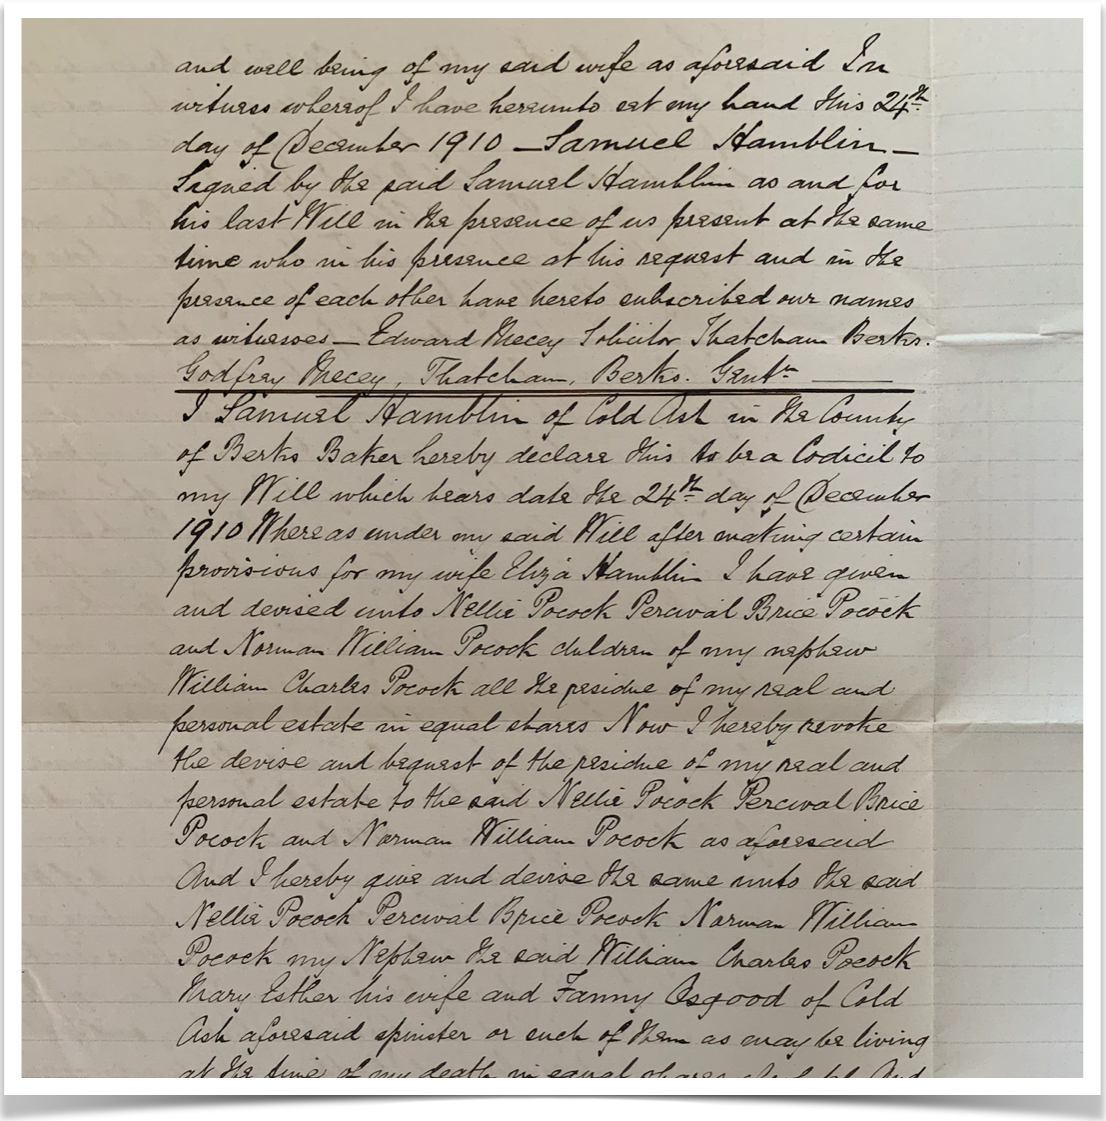 and well being of my said wife as aforesaid In
witness whereof I have hereunto set my hand this 24th
day of December 1910 — Samuel Hamblin —
Signed by the said Samuel Hamblin as and for
his last Will in the presence of us present at the same
time who in his presence at his request and in the
presence of each other have hereto subscribed our names
as witnesses — Edward Mecey Solicitor Thatcham Berks.
Godfrey Mecey, Thatcham, Berks. Gentn ———
I Samuel Hamblin of Cold Ash in the County
of Berks Baker hereby declare this to be a Codicil to
my Will which bears date the 24th day of December
1910 Whereas under my said Will after making certain
provisions for my wife Eliza Hamblin I have given
and devised unto Nellie Pocock Percival Brice Pocock
and Norman William Pocock children of my nephew
William Charles Pocock all the residue of my real and
personal estate in equal shares Now I hereby revoke
the devise and bequest of the residue of my real and
personal estate to the said Nellie Pocock Percival Brice
Pocock and Norman William Pocock as aforesaid
And I hereby give and devise the same unto the said
Nellie Pocock Percival Brice Pocock Norman William
Pocock my Nephew the said William Charles Pocock
Mary Esther his wife and Fanny Osgood of Cold
Ash aforesaid spinster or such of them as may be living
at the time of my death in equal shares And